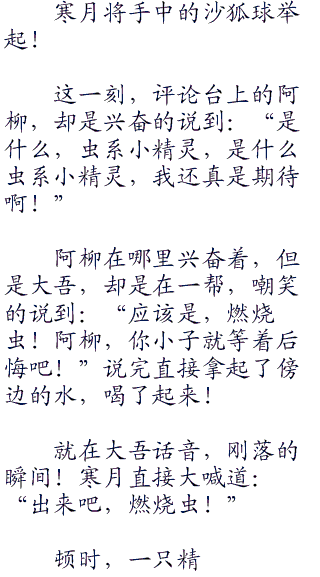 寒月将手中的沙狐球举
起！
这一刻，评论台上的阿
柳，却是兴奋的说到：“是
什么，虫系小精灵，是什么
虫系小精灵，我还真是期待
啊！”
阿柳在哪里兴奋着，但
是大吾，却是在一帮，嘲笑
的说到：“应该是，燃烧
虫！阿柳，你小子就等着后
悔吧！”说完直接拿起了傍
边的水，喝了起来！
就在大吾话音，刚落的
瞬间！寒月直接大喊道：
“出来吧，燃烧虫！”
顿时，一只精